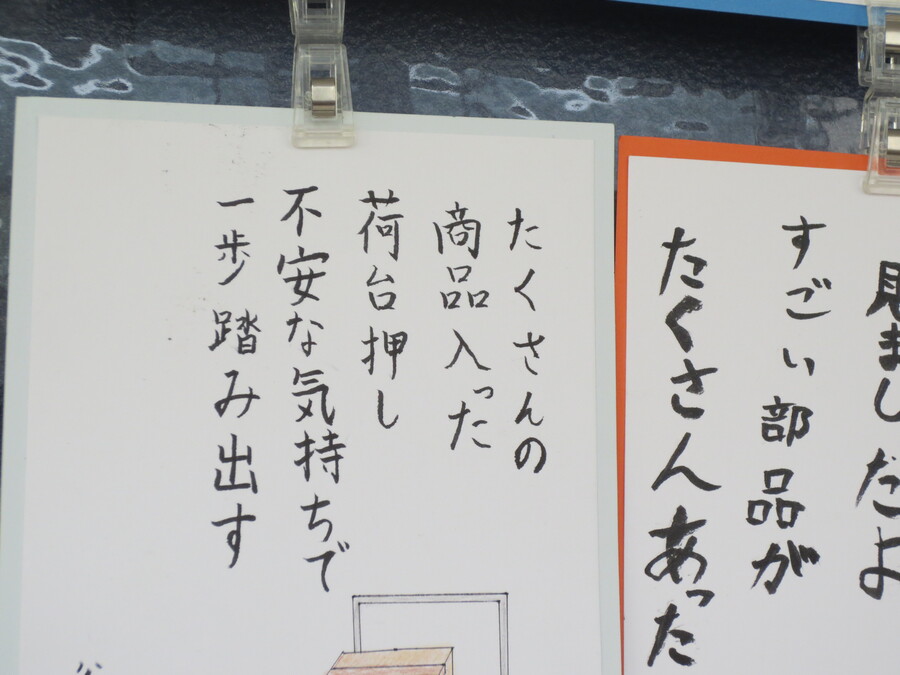 見ましだよ
すごい部品が
たくさんあった
たくさんの
商品入った
荷台押し
不安な気持ちで
一歩踏み出す